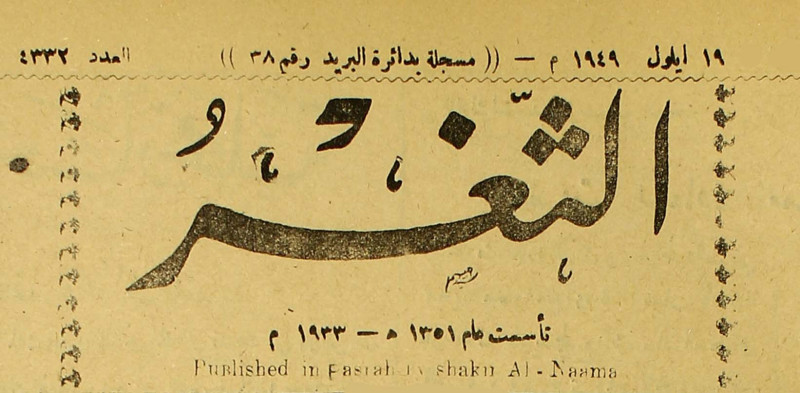 ١٩ ايلول ١٩٤٩ م — (( مسجلة بدائرة البريد رقم ٣٨ )) العدد ٤٣٣٢
الثَّغْرُ
تأسست عام ١٣٥١ ه — ١٩٣٣ م
Published in Basrah by shakir Al - Naama